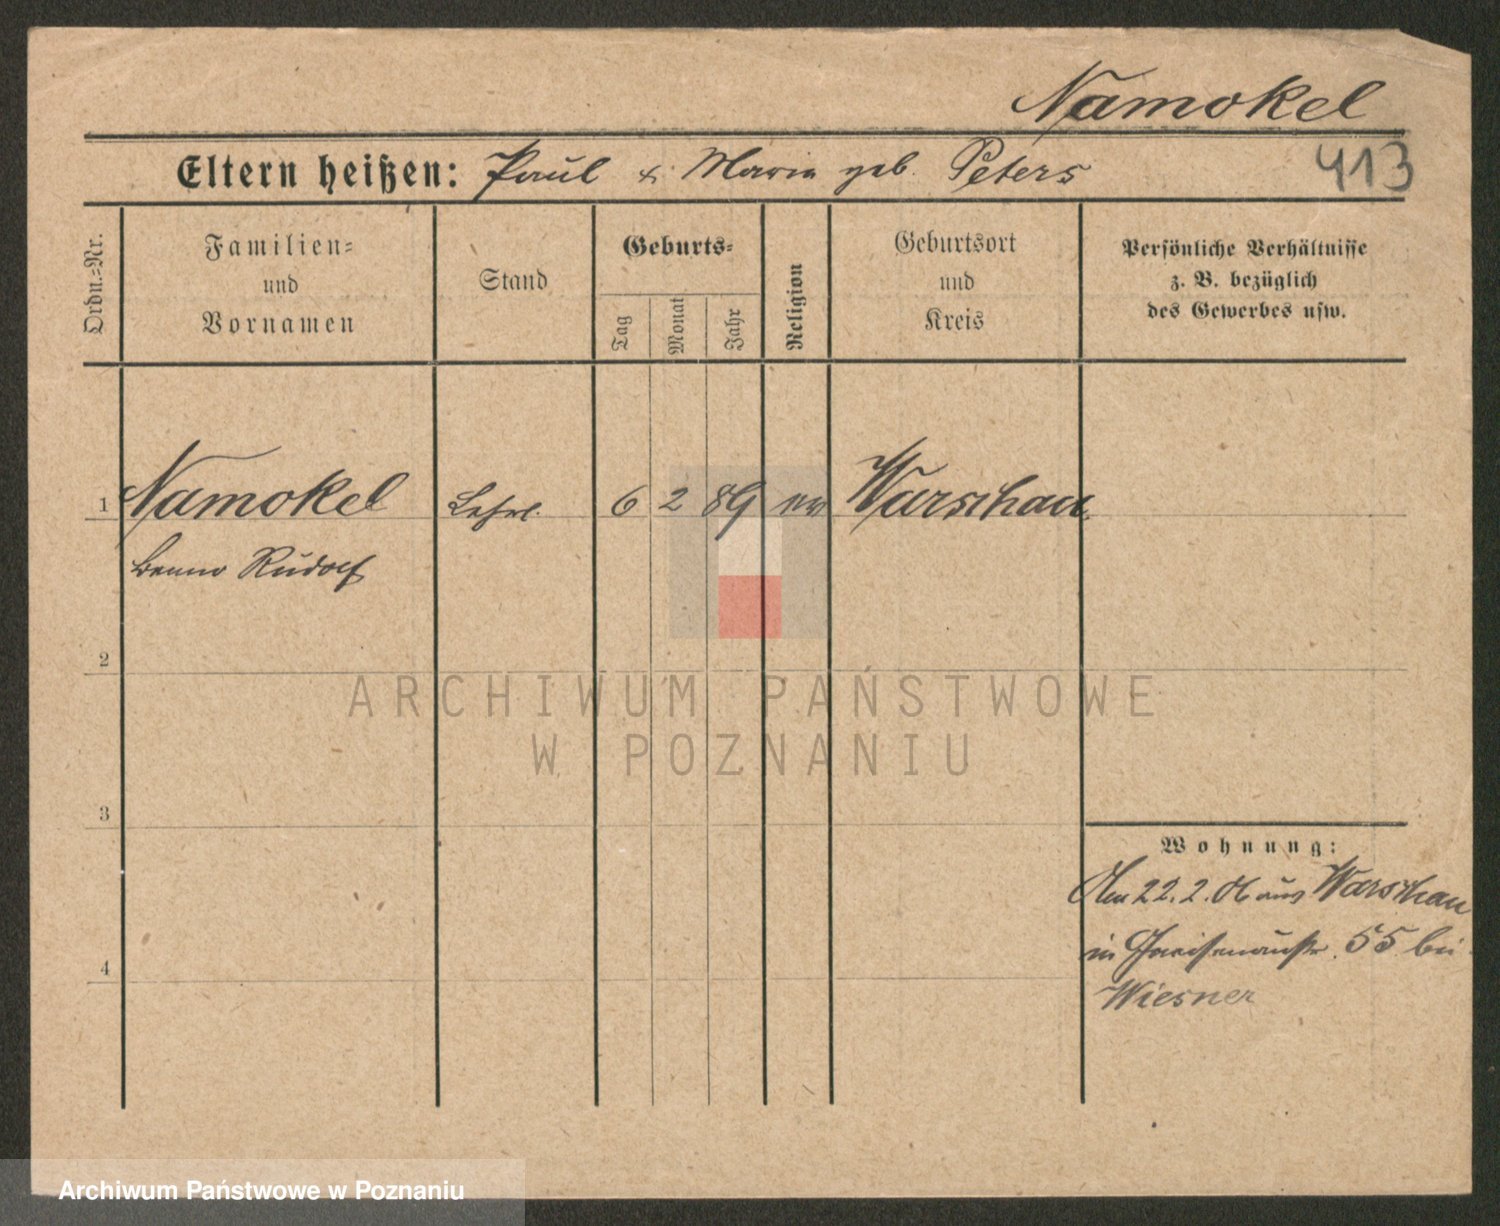 Namokel
413
Eltern heißen: Paul & Maria geb. Peters
Ordn.=Nr.
Familien=
und
Vornamen
Stand
Geburts=
Tag
Monat
Jahr
Religion
Geburtsort
und
Kreis
Persönliche Verhältnisse
z. B. bezüglich
des Gewerbes usw.
1 Namokel Lehrl. 6 2 89 ev Warschau
Benno Rudolf
2
ARCHIWUM PAŃSTWOWE
W POZNANIU
3
Wohnung:
22.2.06 aus Warschau
4
in Gneisenaustr. 55 bei
Wiesner
Archiwum Państwowe w Poznaniu